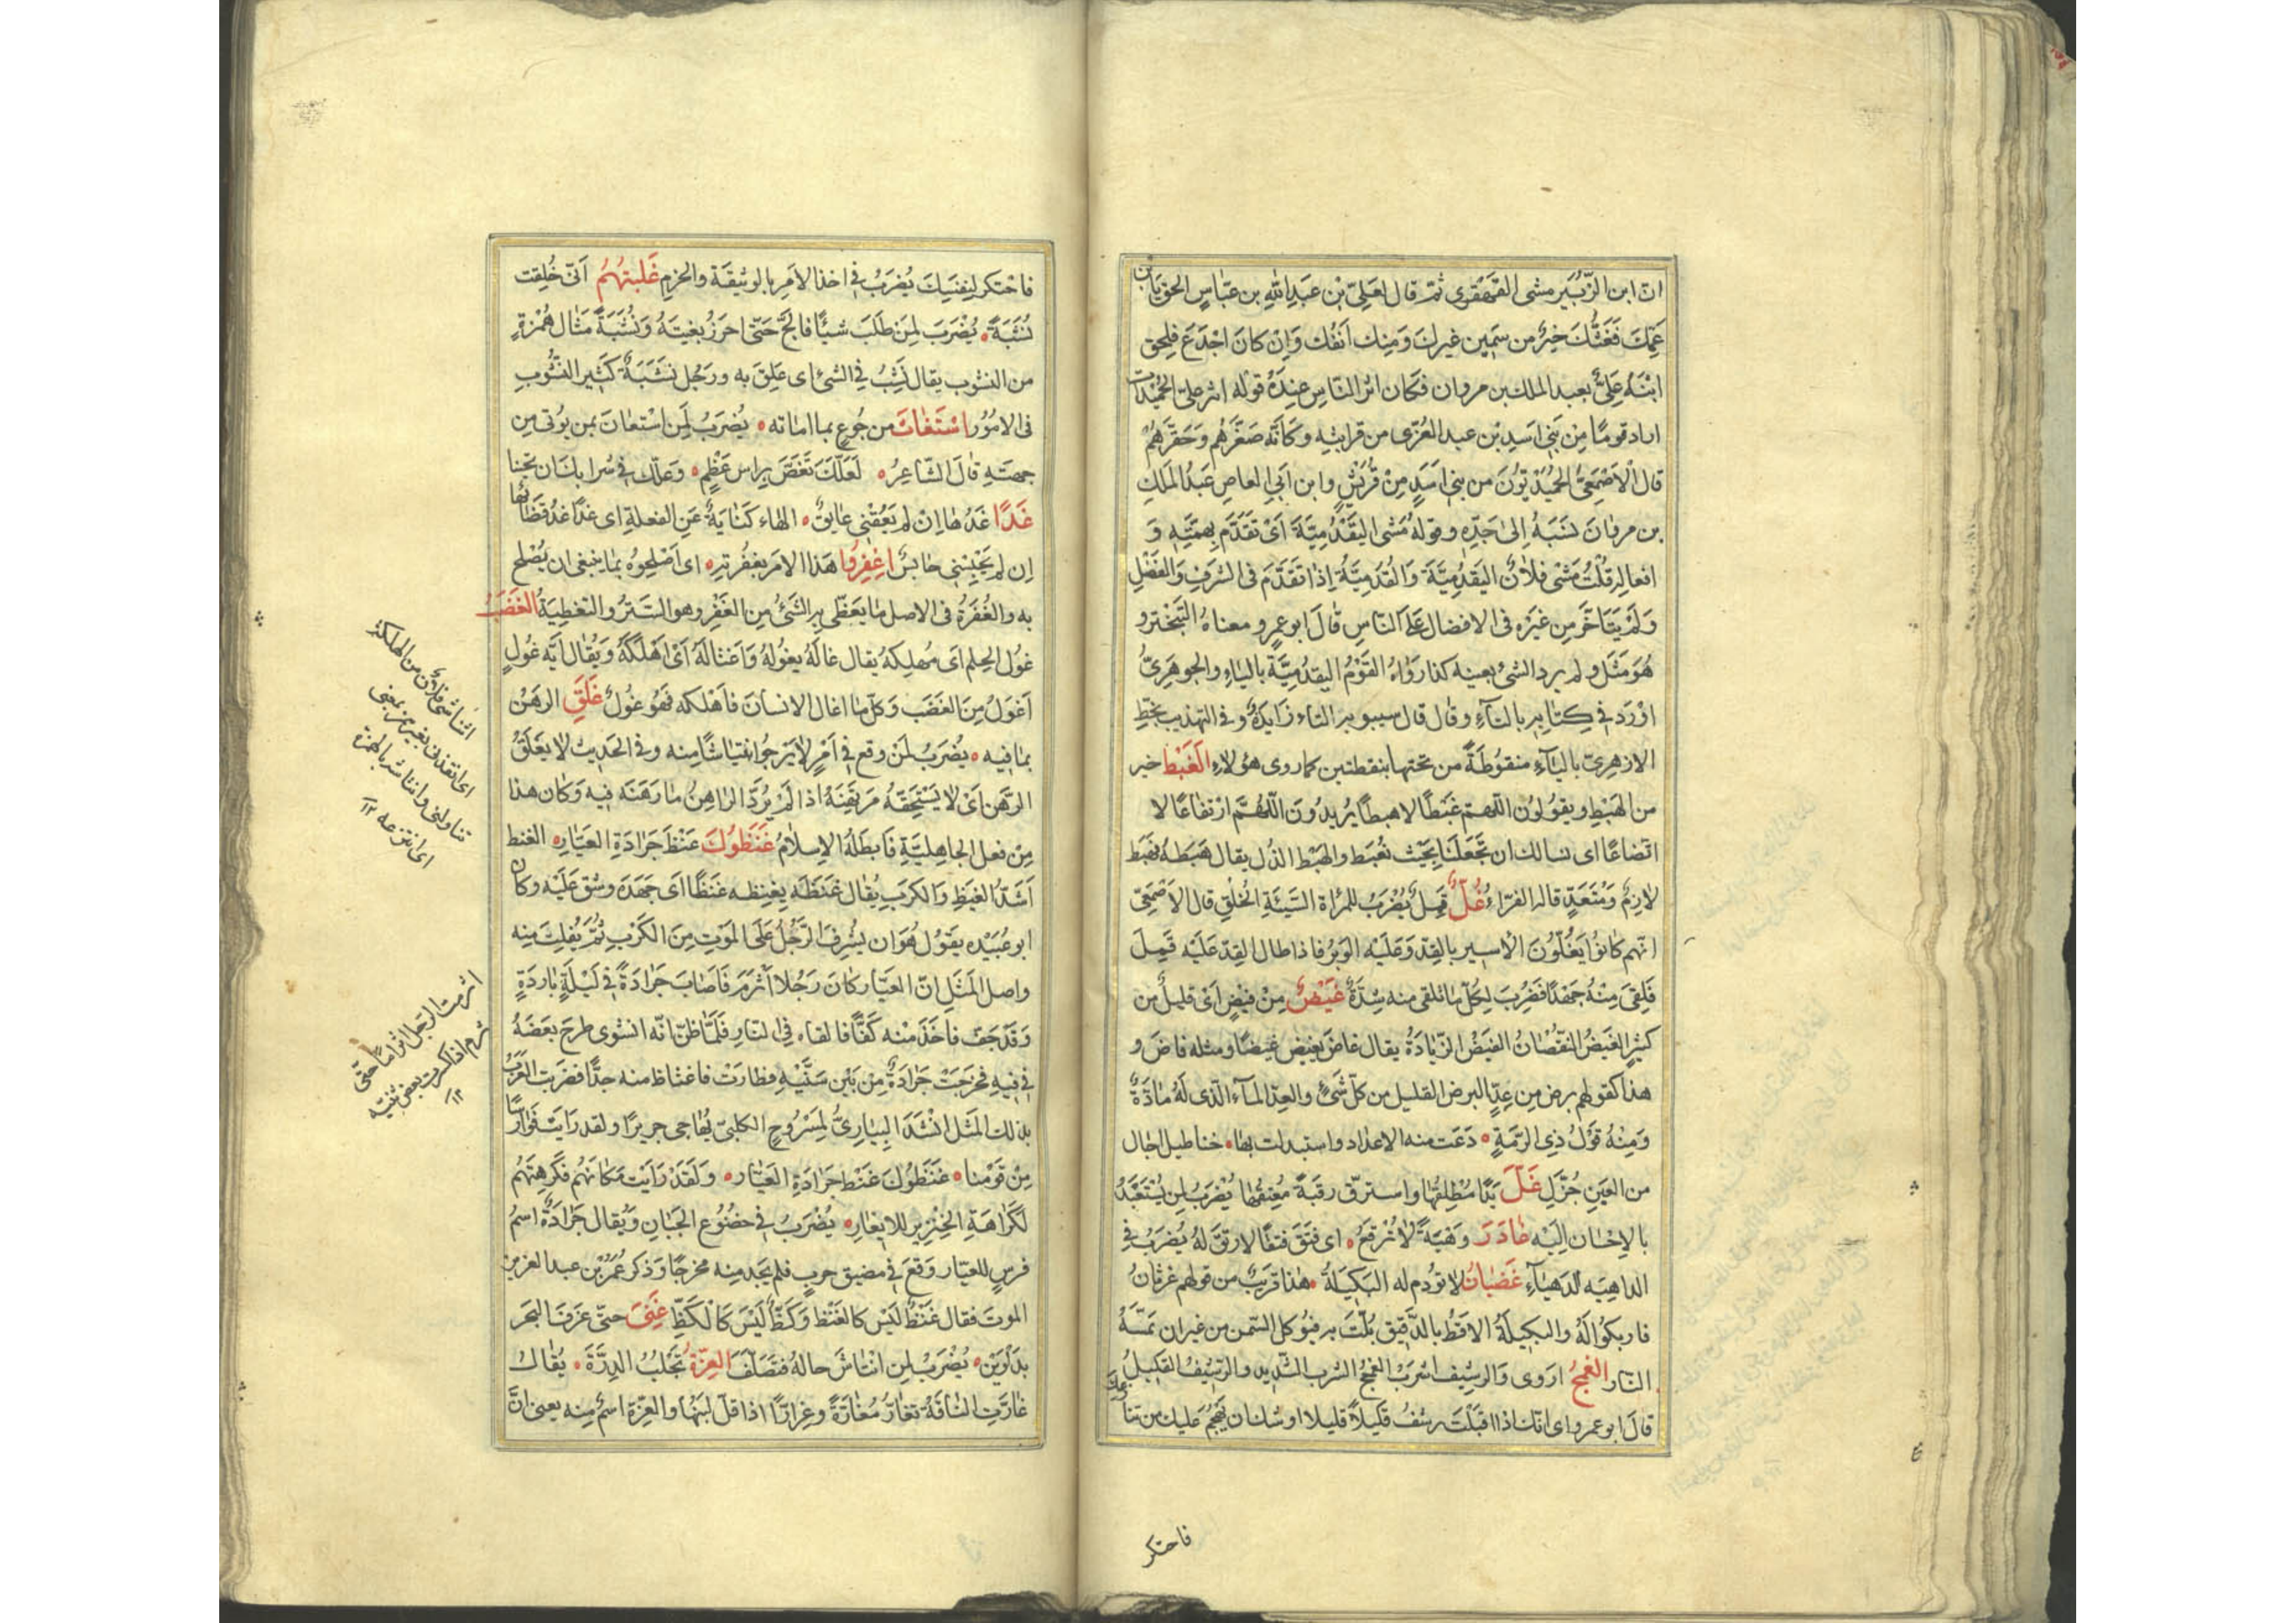 ان ابن الزُّبَير مشى القَهْقَرى ثمّ قال لعَلِيّ بن عَبدِ اللهِ بن عبّاسٍ الحق بابن
عَمِّكَ فَغَثُّكَ خيرٌ من سَمِين غيرك وَمنك انَفُك وَاِنْ كانَ اجْدَعَ فلحِق
ابْنُهُ عَلِيٌّ بعبد الملك بن مروان فكان اثر النّاسِ عندَهُ قولُه اثر عليّ الحُمَيْدات
اراد قومًا مِنْ بَنِي اسَدِ بْن عبد العُزّى من قرابتِه وكانّه صَغَّرَهُم وَحَقَّرَهُمْ
قال الْاَصْمَعِيُّ الحُمَيْدِيُّونَ من بني اسَدٍ مِنْ قُرَيْشٍ وابن اَبي العاصِ عَبْدُ الملكِ
بن مروٰانَ نسَبَهُ اِلىٰ جَدِّهِ وقولهُ مَشى اليَقْدُمِيَّةَ اَىْ تقَدَّمَ بِهِمَّتِهِ وَ
افعالِهِ قُلْتُ مَشْى فلاٰنٌ اليَقدُمِيَّةَ وَالقُدَمِيَّةَ اِذٰا تقَدَّمَ فى الشرَفِ وَالفَضْلِ
وَلَمْ يَتَاخَّر مِن غيَرْهِ فى الافضال عَلَى النّاسِ قٰالَ ابو عمرٍو معناهُ التَّبختر و
هُوَ مَثَل ولم يرد الشئ بعينه كذا رَوٰاهُ القَوْمُ اليقدُمِيَّةَ باليٰاءِ والجوهَرِىُّ
اوْرَد فى كِتٰابِهِ بالتّاءِ وقال قال سيبويه التاء زَايِدَةٌ وفى التهذيب بخطِّ
الازهرِىّ باليَٰاءِ منقوُطَةً من تحتها بنقطتين كما روى هؤلاءِ الغَبْط خير
من الهَبْطِ ويقوُلوُن اللّهمّ غَبَطًا لا هبطًا يُريدُونَ اللّهُمَّ ارْتفاعًا لا
اتضاعًا اى نسالك ان تَجعَلَنا بِحَيْث نُغبَط والهَبْط الذُل يقال هَبَطهُ فهَبَط
لازِمٌ وَمُتَعَدٍّ قالهُ الفرّاء غُلٌّ قَمِلٌ يُضْرَبُ للمرْاة السَيّئَةِ الخُلُقِ قال الاَصْمَعِىّ
انّهم كانوُا يَغُلّوُنَ الْاسِير بالقِدِّ وَعَلَيْه الوَبَرُ فاذا طال القِدّ عَلَيْه قَمِلَ
فَلِقىَ مِنْهُ جَهْدًا فَضُرِبَ لِكُلّ مٰا تلقى منه شِدَّةً غَيْضٌ مِنْ فيَضٍ اَىْ قليلٌ من
كثيرٍ الغَيَضُ النقُصٰان الفيَضُ الزّيٰادَةُ يقال غاضَ يغيضُ غيضًا ومثله فاضَ و
هذا كقولهم برض مِن عِدٍّ البرض القليل من كلّ شَئٍ والعِدّ المٰآءُ الّذى لَهُ مٰادَّةٌ
وَمِنْهُ قَوْلُ ذِي الرُّمَةِ دَعَت منه الاعدٰاد واستبدلت بها خناطيل اجال
من العِينِ خُذَّلِ غَلَّ يَدًا مُطْلِقُها واسترقّ رقبَةً مُعتِقُها يُضْرَبُ لِمن يُسْتَعْبَدُ
بالاِحْسان اِلَيْه غٰادَرَ وَهْيَةً لاٰ تُرْقَعُ اى فتَقَ فتقًا لا رتقَ لهُ يُضرَبُ في
الداهِيَه الدَهيٰاءِ غَضبٰانُ لا تؤدم له البَكيَلةُ هٰذا قريَبٌ من قولهم غرثٰانُ
فاربكُوا لَهُ والبكيلَةُ الاقطُ بالدَّقيقِ يُلَتَّ به فيؤكل بالسّمن من غير ان تمَسَّهُ
النّار الغَمْجُ اروى وَالرشيف اشرَبُ الغمجُ الشرب الشّدِيد والرّشيفُ القليلُ
قالَ ابو عمرٍو اى انّك اذا اقبَلْتَ ترشفُ قليلاً قليلا اوشك ان يهجُمَ عليك من تنا عك
فاحتكر
فاحْتكر لِنفسِكَ يُضْرَبُ فى اخذ الامرِ بالوثيقَة والحزمِ غَلَبتُهُمُ اَنّى خُلِقت
نُشَبَةً يُضْرَبَ لِمَنْ طَلَبَ شيئًا فالحَّ حَتّى احرَزَ بغيتَهُ وَنُشَبَةً مثٰال هُمَزَةٍ
من النشوب يقال نشِبُ في الشئ اى عَلِقَ به ورجُل نُشَبَةٌ كَثِير النشُوبِ
فى الامُوُر اسْتَغٰاثَ من جُوعٍ بما امٰاته يُضرَبُ لِمَن استعٰانَ بمن يؤتى مِن
جِهَتِهِ قٰالَ الشّاعِرُ لَعَلَّكَ تَغَصَّ بِراسِ عَظْمٍ وَعلّك فى شرابك ان تحينا
غَدًا غَدُهٰا اِنْ لم يَعُقْنى عايقٌ الهاء كنٰايةٌ عَنِ الفعلةِ اى غدًا غدُ قضٰائها
اِن لم يَحْبِسْنى حٰابسٌ اغْفِرُوا هَذا الامرَ بغُفْرَتِهِ اى اصْلِحوُهُ بمٰا ينبغى ان يُصْلح
به والغُفرَةُ فى الاصل مٰا يغَطّى بِهِ الشئُ مِن الغَفْرِ وهو السَترُ والتغطِيَةُ الغَضَبُ
غوُل الحِلم اى مُهلِكهُ يقال غالَهُ يغوُلهُ وَاغتالَهُ اَىْ اهْلَكَهُ وَيُقٰال ايّه غوُلٍ
اَغوَلُ مِنَ الغَضَبَ وَكلّ مٰا اغال الانسٰانَ فاَهْلكه فَهَو غوُلٌ غَلَقَ الرهْنُ
بمٰا فيه يُضْرَبُ لمَنْ وقع في اَمْرٍ لاٰ يَرْجوُ انتيٰاشًا منه وفى الحَديث لا يغلَقُ
الرَّهَن اَىْ لاٰ يَسْتحِقّهُ مرتهِنهُ اذا لَمْ يُردَّ الرّاهِنُ مٰا رَهنَه فيه وَكٰان هذا
مِنْ فعل الجٰاهِليَّةِ فاَبطلهُ الاِسلاٰمُ غَنَظوُكَ غَنْظَ جَرٰادَةِ العَيّار الغنظ
اَشَدُّ الغيَظِ وَالكرَبِ يُقال غنَظهُ يغنِظه غنَظًا اى جَهَدَه وشق عَلَيْه وكان
ابو عُبَيْده يقَوُل هُوَ ان يشرِفَ الرّجُلُ عَلَى الموَتِ مِنَ الكرْبِ ثمّ يُفلِتَ منه
واصل المَثَلِ اِنّ العيّار كٰانَ رَجُلا اثرَمَ فَاَصٰابَ جَرٰادَةً فى لَيْلَةٍ بٰاردَةٍ
وَقَدْ جَفّ فاخَذ منْه كَفًّا فالقاه فى النّارِ فلمّا ظنّ انّه انشوى طرحَ بعَضَهُ
فى فيهِ فخرَجتْ جَرٰادَةٌ مِنْ بَيْنِ سَنَّيْهِ فطارَتْ فاغتٰاظ منه جدًّا فضرَبت العَرَبُ
بذلك المثَل انْشدَ البيٰارىُّ لمِسْرُوحٍ الكلبىّ يُهٰاجى جريرًا ولقد رَايت فوارسًا
مِنْ قوَمْنا غنَظوُكَ غَنْط جَرٰادَةِ العيّار وَلَقَدْ رَايَت مَكٰانَهُم فَكرِهتَهُم
لَكرٰاهَةِ الخِنْزِير للاِيغار يُضْرَبُ فى خضُوُع الجَبٰانِ وَيُقٰال جَرٰادَةُ اسمُ
فرسٍ للعيّار وَقعَ في مضيق حربٍ فلم يجَد منِه مخرجًا وَذكر عُمَرُ بن عبد العزيز
الموتَ فقال غَنظٌ ليْسَ كالغَنْظ وَكَظٌّ لَيْسَ كَالْكَظِّ غَنِىَ حتّى غرَفَ البَحر
بدَلْوَيْنِ يُضْرَبُ لِمن انْتاشَ حالهُ فتصَلّفَ الغِرّةُ تُجْلبُ الدِرَّةَ يُقٰال
غٰارّتِ النّاقَةُ تغارّ مُغٰارّةً وغِرارًا اذا قلّ لبَنُهٰا والغِرّة اسمٌ مِنه يعنى انّ
انتاشنى فلانٌ من الهلكة
اى انقذنى بغير همز بمعنى
تناولنى وانتاشه بالهمزة
اى انتزعه ١٢
اثرمت الرّجل اثرامًا حتّى
ثرم اذا كرت بعض ثنيّته
١٢